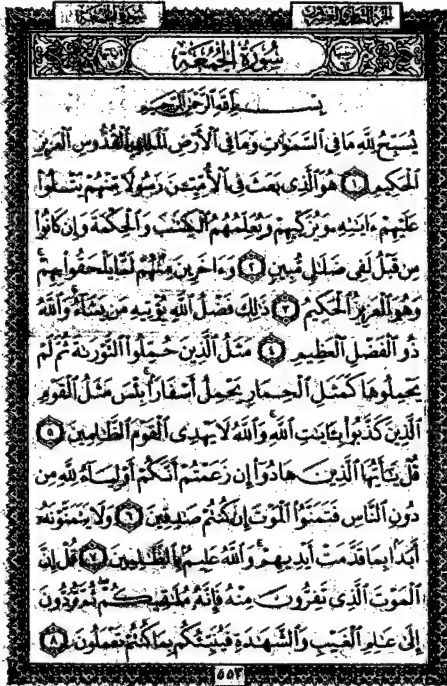 سُورَةُ الجُمُعَةِ
الجزءُ الثَّامِنُ والعِشْرُونَ
سُورَةُ الْجُمُعَةِ
بِسْمِ اللَّهِ الرَّحْمَٰنِ الرَّحِيمِ
يُسَبِّحُ لِلَّهِ مَا فِي السَّمَٰوَٰتِ وَمَا فِي الْأَرْضِ الْمَلِكِ الْقُدُّوسِ الْعَزِيزِ
الْحَكِيمِ ١ هُوَ الَّذِي بَعَثَ فِي الْأُمِّيِّـۧنَ رَسُولًا مِّنْهُمْ يَتْلُوا۟
عَلَيْهِمْ ءَايَٰتِهِۦ وَيُزَكِّيهِمْ وَيُعَلِّمُهُمُ الْكِتَٰبَ وَالْحِكْمَةَ وَإِن كَانُوا۟
مِن قَبْلُ لَفِي ضَلَٰلٍ مُّبِينٍ ٢ وَءَاخَرِينَ مِنْهُمْ لَمَّا يَلْحَقُوا۟ بِهِمْ ۚ
وَهُوَ الْعَزِيزُ الْحَكِيمُ ٣ ذَٰلِكَ فَضْلُ اللَّهِ يُؤْتِيهِ مَن يَشَآءُ ۚ وَاللَّهُ
ذُو الْفَضْلِ الْعَظِيمِ ٤ مَثَلُ الَّذِينَ حُمِّلُوا۟ التَّوْرَىٰةَ ثُمَّ لَمْ
يَحْمِلُوهَا كَمَثَلِ الْحِمَارِ يَحْمِلُ أَسْفَارًۢا ۚ بِئْسَ مَثَلُ الْقَوْمِ
الَّذِينَ كَذَّبُوا۟ بِـَٔايَٰتِ اللَّهِ ۚ وَاللَّهُ لَا يَهْدِي الْقَوْمَ الظَّٰلِمِينَ ٥
قُلْ يَٰٓأَيُّهَا الَّذِينَ هَادُوٓا۟ إِن زَعَمْتُمْ أَنَّكُمْ أَوْلِيَآءُ لِلَّهِ مِن
دُونِ النَّاسِ فَتَمَنَّوُا۟ الْمَوْتَ إِن كُنتُمْ صَٰدِقِينَ ٦ وَلَا يَتَمَنَّوْنَهُۥٓ
أَبَدًۢا بِمَا قَدَّمَتْ أَيْدِيهِمْ ۚ وَاللَّهُ عَلِيمٌۢ بِالظَّٰلِمِينَ ٧ قُلْ إِنَّ
الْمَوْتَ الَّذِي تَفِرُّونَ مِنْهُ فَإِنَّهُۥ مُلَٰقِيكُمْ ۖ ثُمَّ تُرَدُّونَ
إِلَىٰ عَٰلِمِ الْغَيْبِ وَالشَّهَٰدَةِ فَيُنَبِّئُكُم بِمَا كُنتُمْ تَعْمَلُونَ ٨
٥٥٣